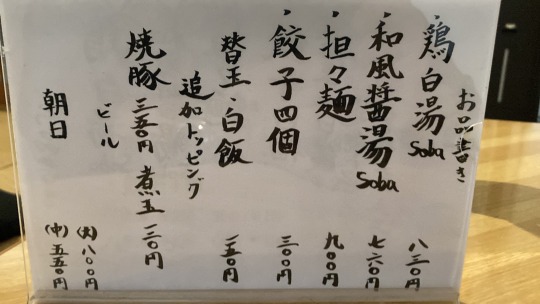 お品書き
・鶏白湯Soba 八三〇円
・和風醤湯Soba 七六〇円
・担々麺 九〇〇円
・餃子四個 三〇〇円
替玉・白飯 一五〇円
追加トッピング
焼豚三五〇円 煮玉一二〇円
ビール
朝日 (大)八〇〇円
(中)五五〇円